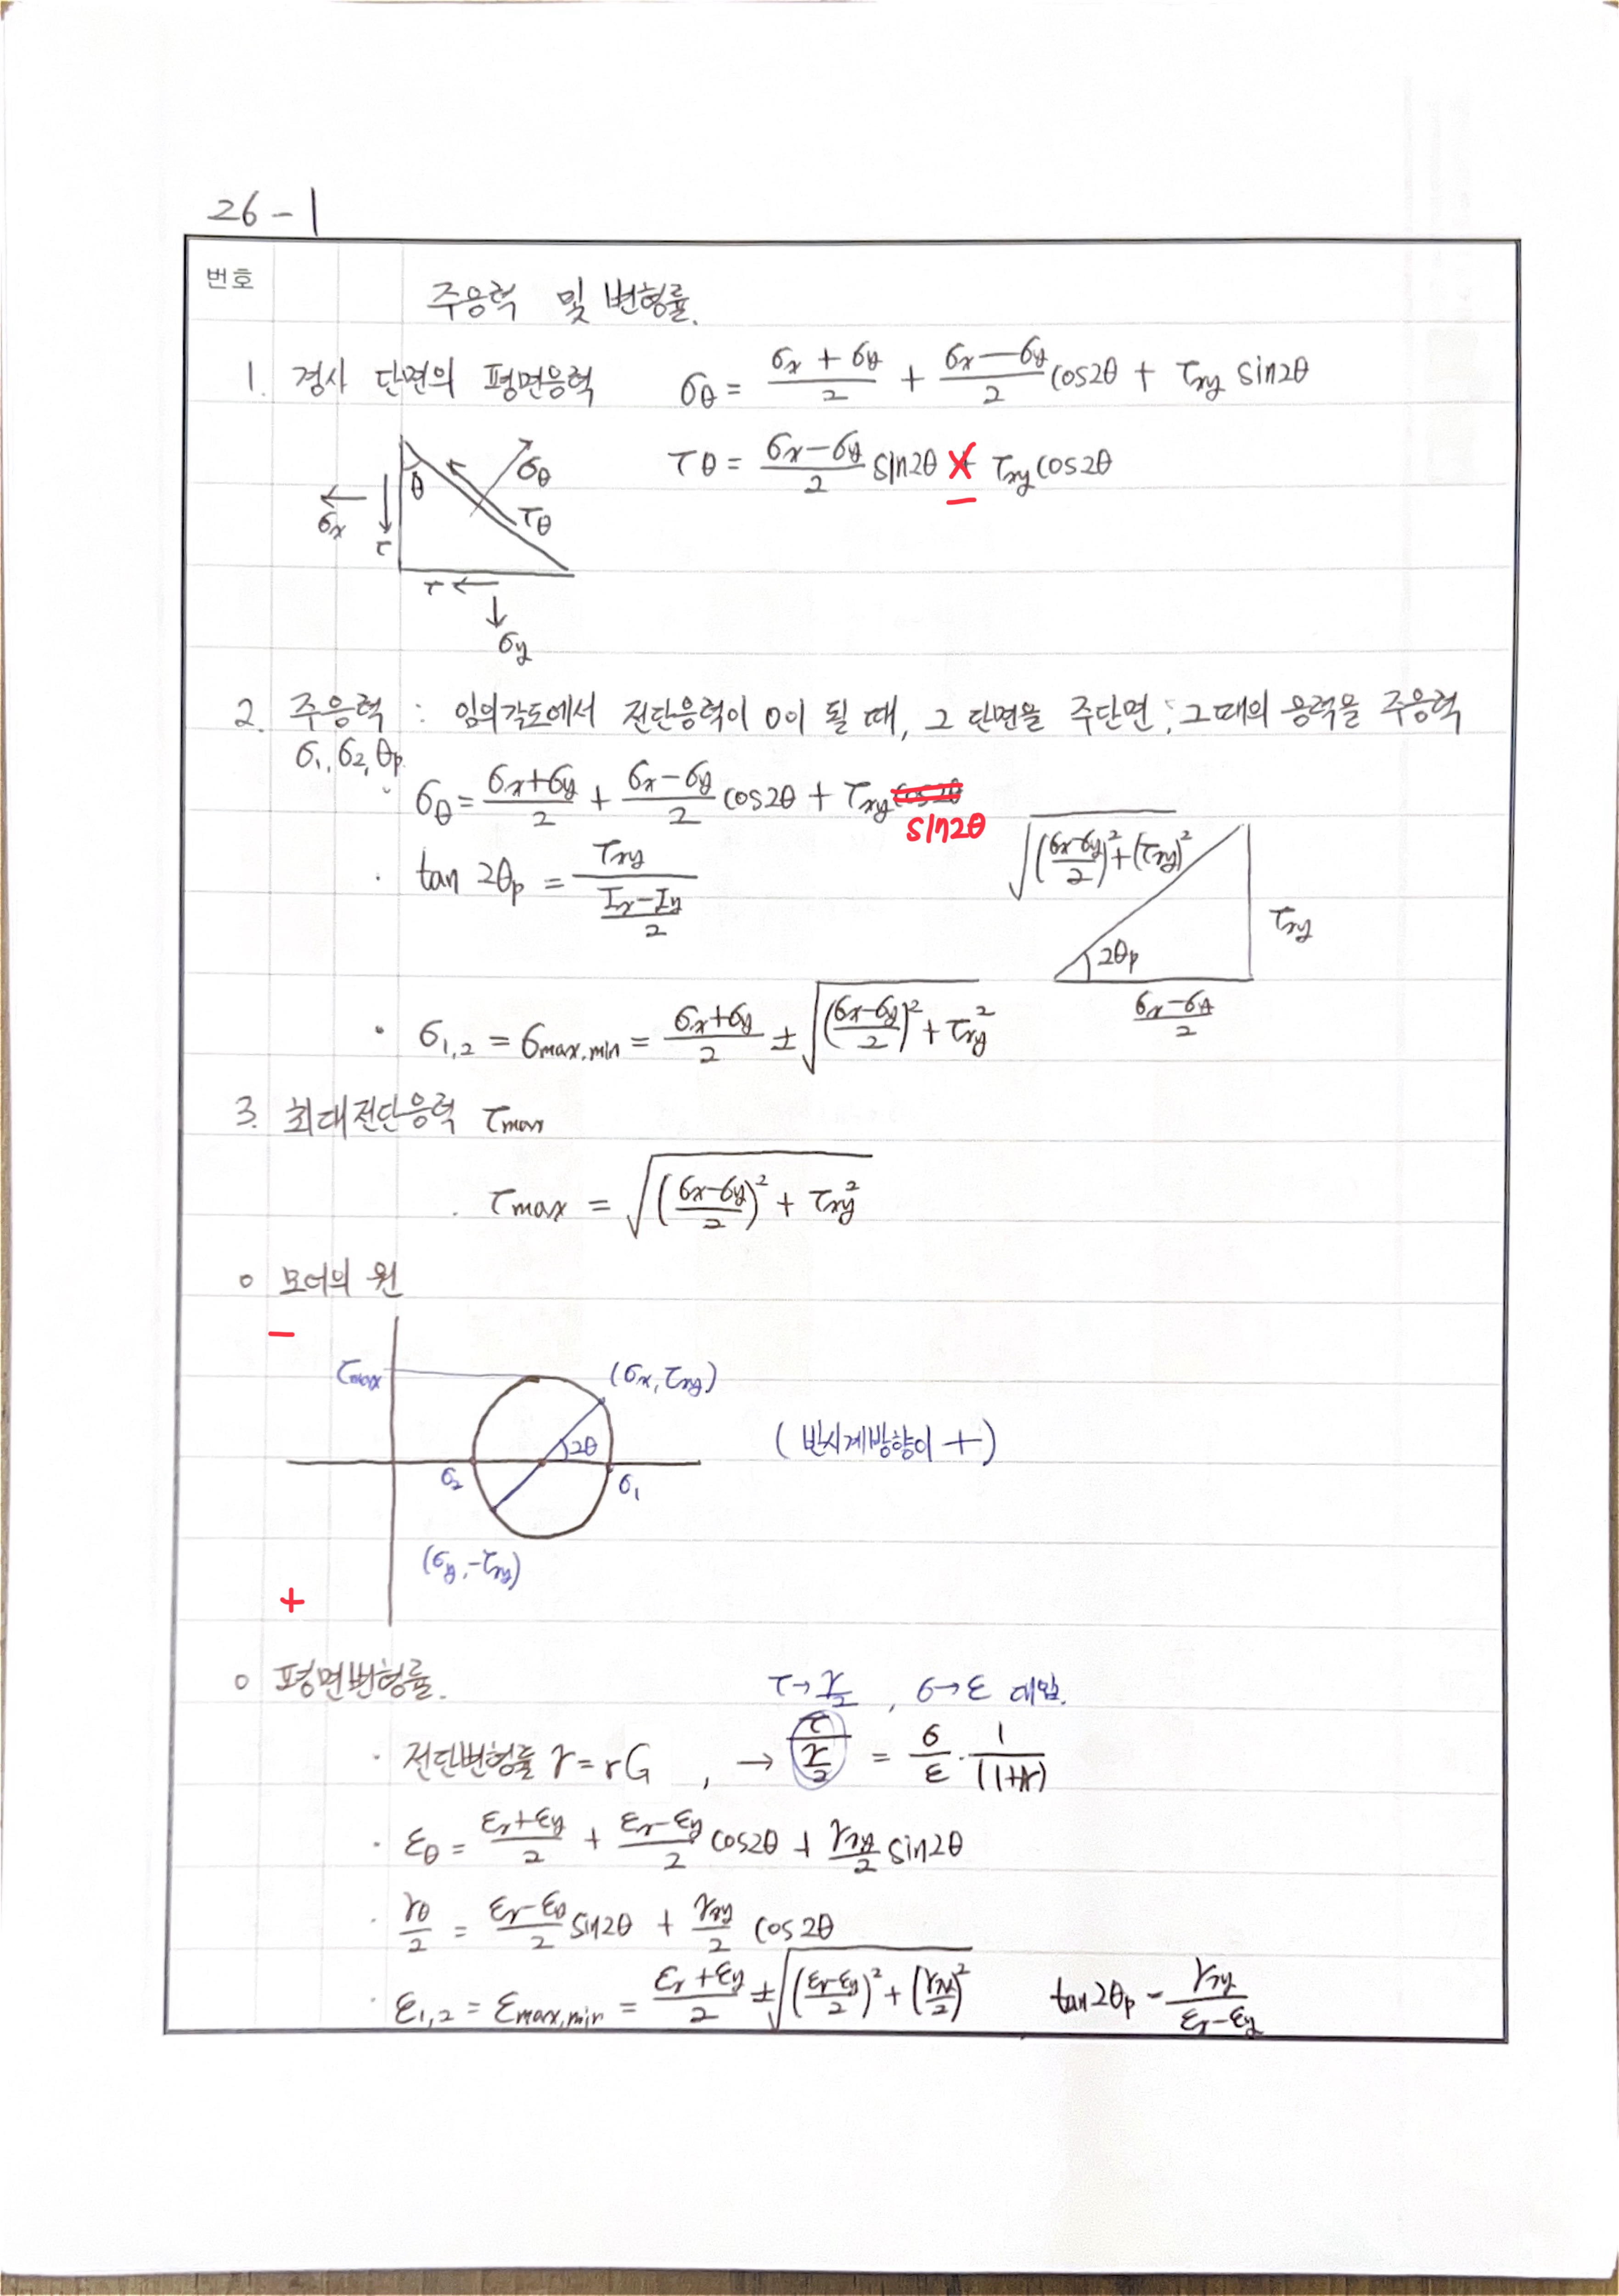 26-1
번호
주응력 및 변형률.
1. 경사 단면의 평면응력 σθ = (σx + σy)/2 + (σx - σy)/2 cos2θ + τxy sin2θ
τθ = (σx - σy)/2 sin2θ - τxy cos2θ
θ σθ
σx τ τθ
τ
σy
2. 주응력 : 임의각도에서 전단응력이 0이 될 때, 그 단면을 주단면, 그때의 응력을 주응력
σ1, σ2, θp
· σθ = (σx+σy)/2 + (σx-σy)/2 cos2θ + τxy sin2θ
· tan 2θp = τxy/((Ix-Iy)/2)
√(((σx-σy)/2)² + (τxy)²)
τxy
2θp
(σx-σy)/2
· σ1,2 = σmax,min = (σx+σy)/2 ± √(((σx-σy)/2)² + τxy²)
3. 최대전단응력 τmax
· τmax = √(((σx-σy)/2)² + τxy²)
○ 모어의 원
−
τmax (σx, τxy)
2θ (반시계방향이 +)
σ2 σ1
(σy, -τxy)
+
○ 평면변형률. τ→γ/2 , σ→ε 대입.
· 전단변형률 γ = rG , → τ/(γ/2) = σ/ε · 1/(1+ν)
· εθ = (εx+εy)/2 + (εx-εy)/2 cos2θ + γxy/2 sin2θ
· γθ/2 = (εx-εy)/2 sin2θ + γxy/2 cos2θ
· ε1,2 = εmax,min = (εx+εy)/2 ± √(((εx-εy)/2)² + (γxy/2)²) tan2θp = γxy/(εx-εy)